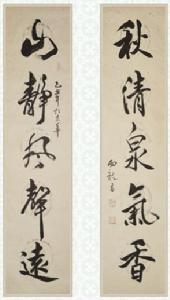 秋清泉氣香
山靜風聲遠